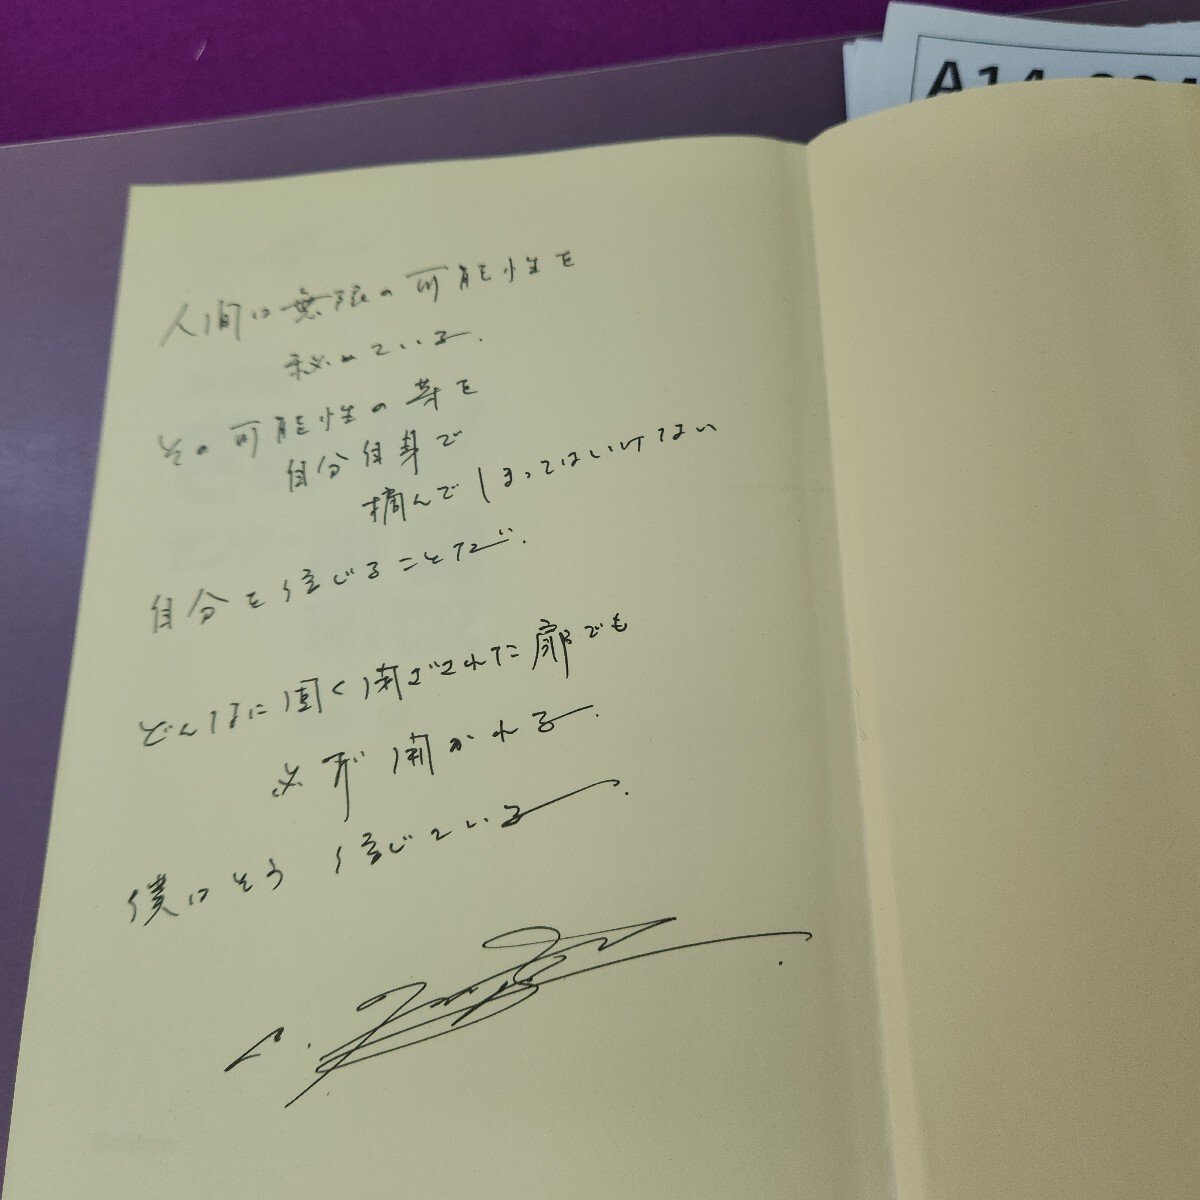 A14
人間は無限の可能性を
秘めている.
その可能性の芽を
自分自身で
摘んでしまってはいけない
自分を信じることだ.
どんなに固く閉ざされた扉でも
必ず開かれる.
僕はそう信じている.